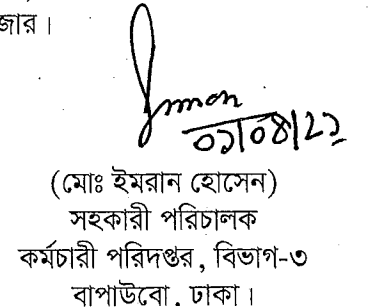 জার।
০১/০৪/২১
(মোঃ ইমরান হোসেন)
সহকারী পরিচালক
কর্মচারী পরিদপ্তর, বিভাগ-৩
বাপাউবো, ঢাকা।